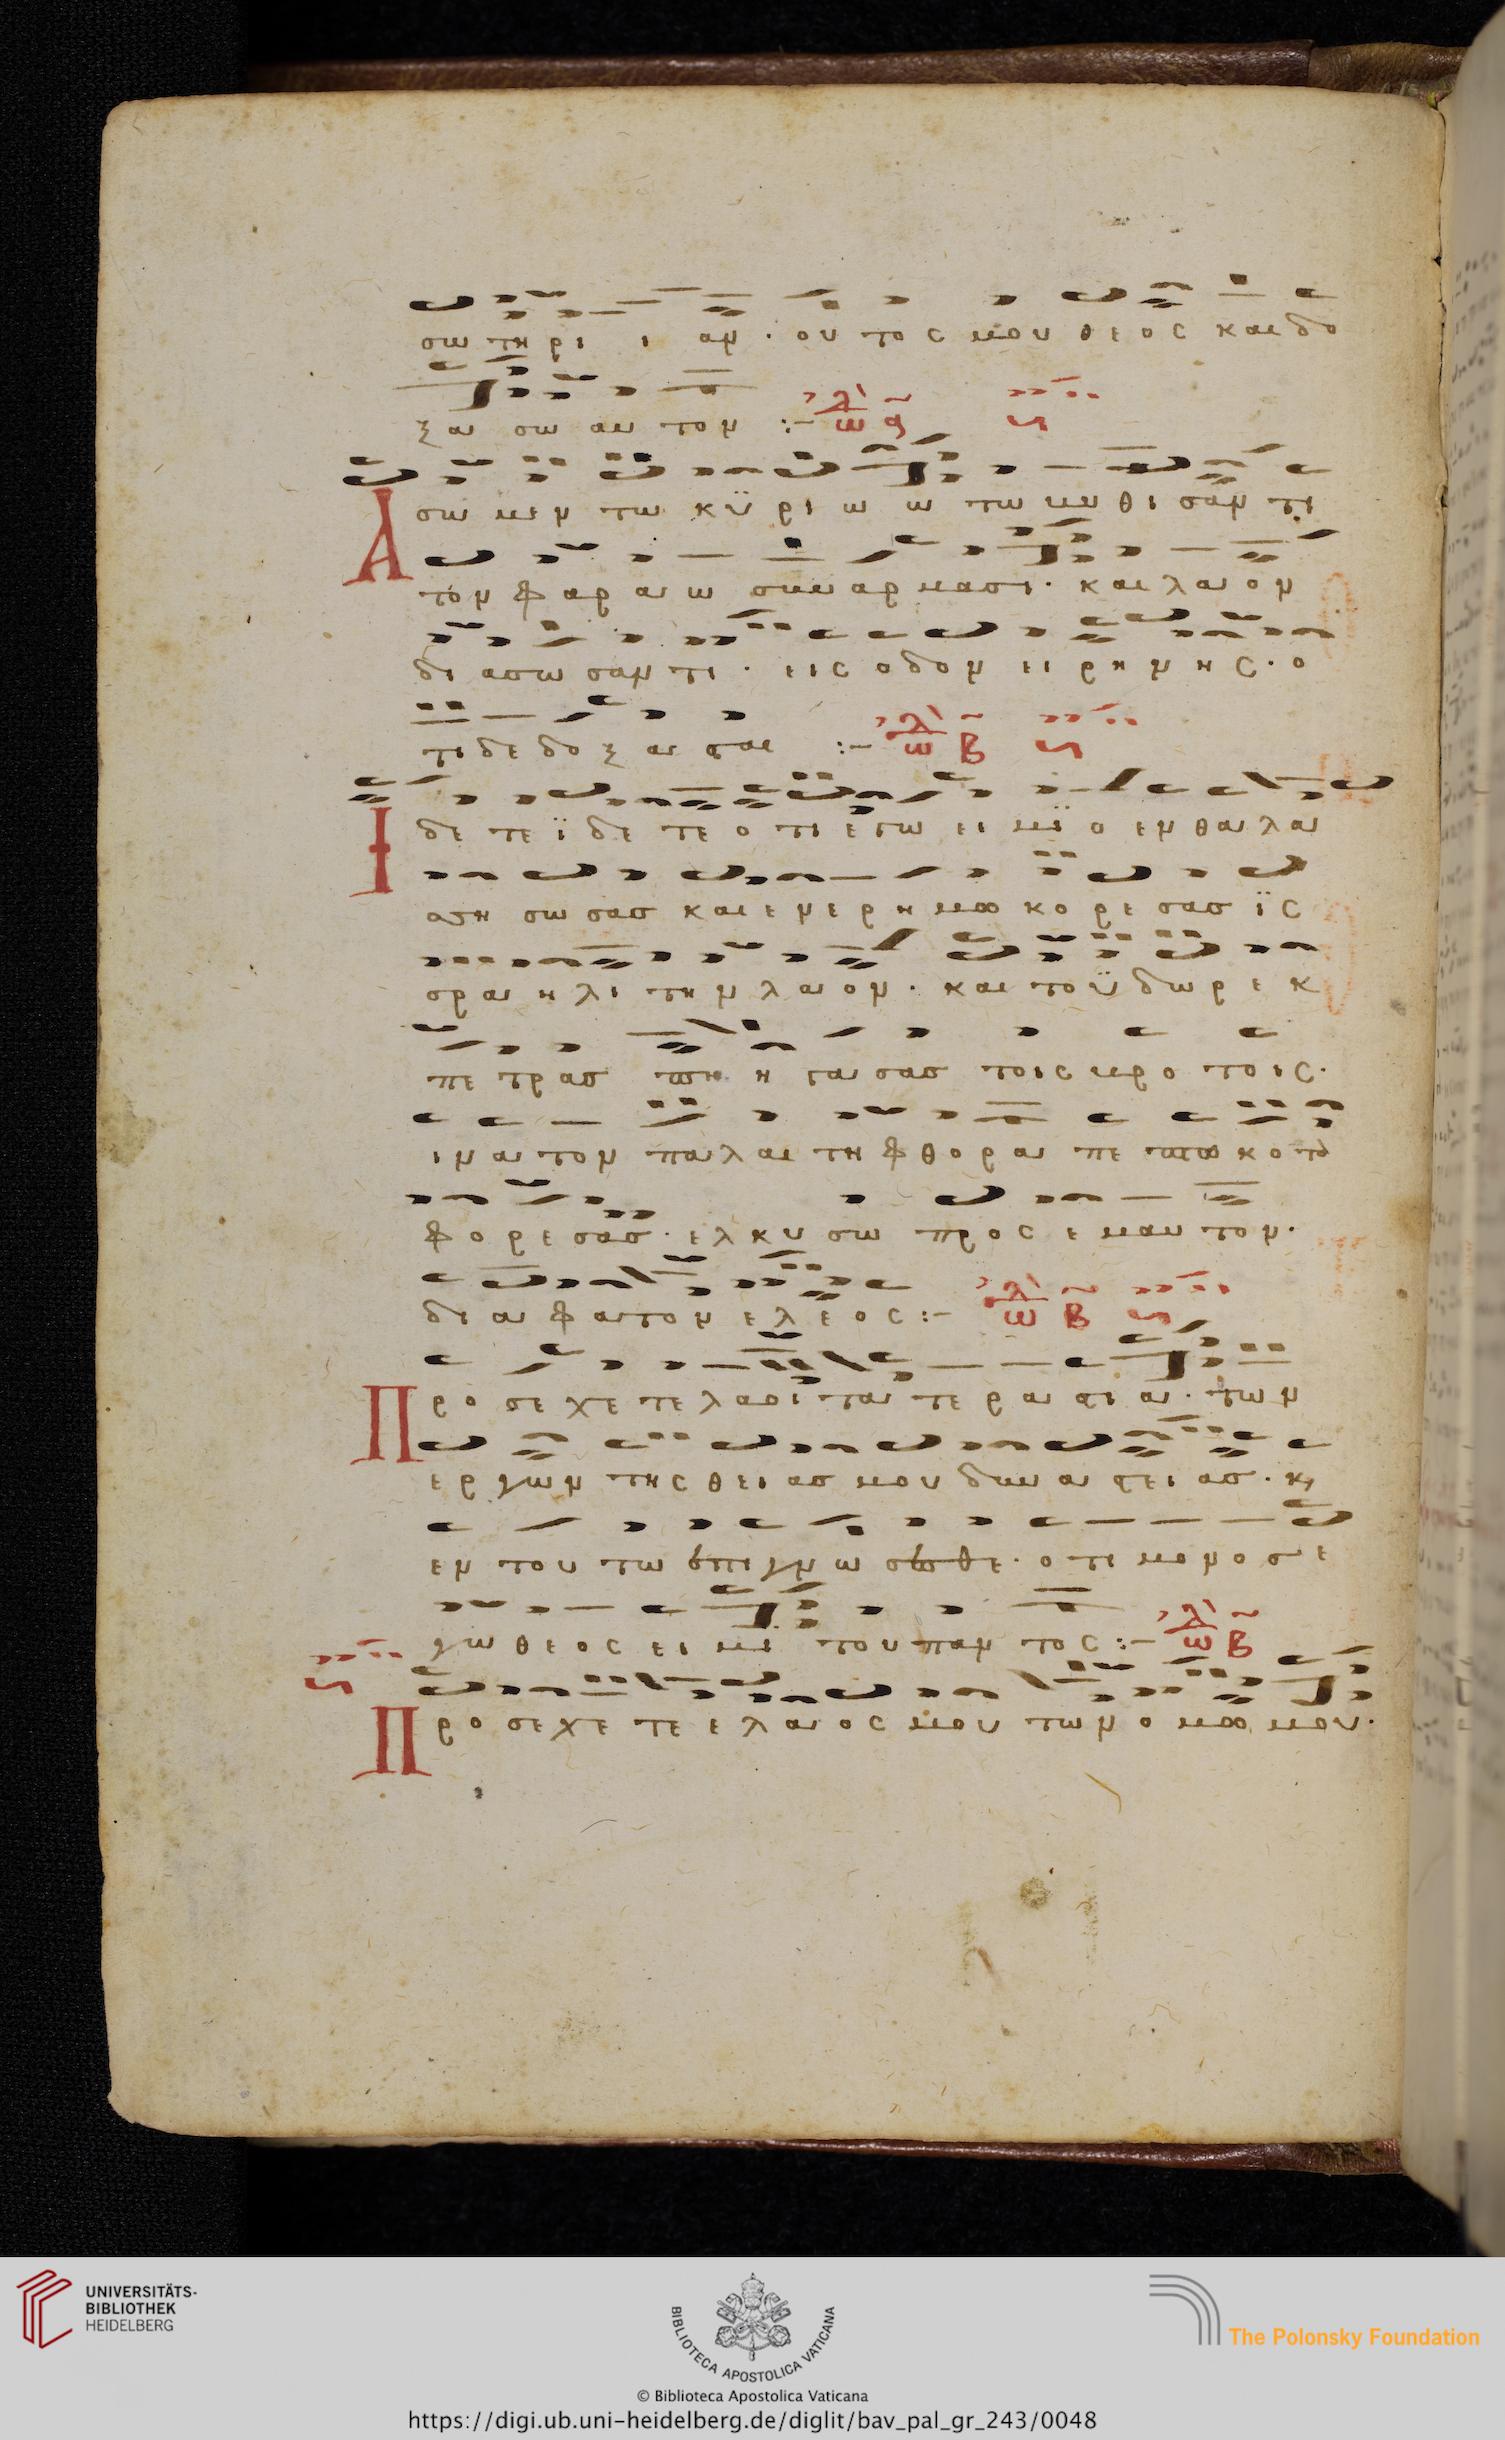 σω τη ρι ι αν · ου τος μου θε ος και δο
ξα σω αυ τον :– ᾠδ α
Α σω μεν τω κυ ρι ω ω τω βυ θι σαν τι
τον φαρ α ω συν αρ μασι · και λα ον
δι ασω σαν τι · εις οδον ει ρη νης · ο
τι δε δο ξα σται :– ᾠδ β
Ι δε τε ϊ δε τε ο τι ε γω ει μι ο εν θα λα
ση σω σασ και εν ερη μω κο ρε σασ ϊς
σρα η λι την λα ον · και το ϋδωρ ε κ
πε τρας πη η γα σας τοις βρο τοις ·
ιν α τον πα λαι τη φθο ρα πε πτω κο τα
φο ρε σας · ελ κυ σω προς ε μαυ τον ·
δι α φα τον ελ ε ος :– ᾠδ β
Π ρο σε χε τε λα οι τα τε ρα στι α · των
ερ γων της θει ασ μου δυν α στει ασ · κ,
εν του τω επι γνω σεσθε · ο τι μο νο σ ε
γω θε ος ει μι του παν τος :– ᾠδ β
Π ρο σε χε τε ε λα ος μου των ο μω μου ·
UNIVERSITÄTS-
BIBLIOTHEK
HEIDELBERG
BIBLIOTECA APOSTOLICA VATICANA
The Polonsky Foundation
© Biblioteca Apostolica Vaticana
https://digi.ub.uni-heidelberg.de/diglit/bav_pal_gr_243/0048